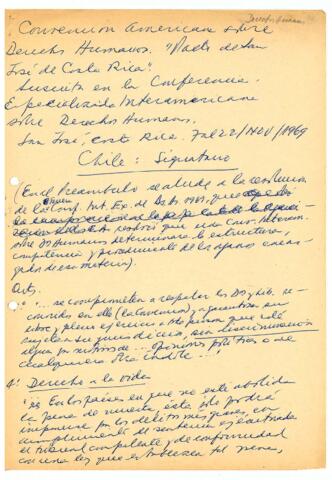 Derechos Humanos
Convencion Americana sobre
Derechos Humanos. "Pacto de San
José de Costa Rica".
Suscrita en la Conferencia
Especializada Interamericana
sobre Derechos Humanos.
San José, Costa Rica. 7 al 22/Nov/1969
Chile: Signatario
(En el Preambulo se alude a la
de la Conf. Int. Exp. de Bs As 1967, que
resolvió que una Conv. Interam.
sobre D Humanos determinara la estructura,
competencia y procedimiento de los organos encar
gados de esa materia).
Art 1
"... se comprometen a respetar los D y Lib. re
conocidos en ella (la Convencion) y a garantizar su
libre y pleno ejercicio a toda persona que esté
sujeta a su jurisdiccion, sin discriminacion
alguna por motivos de ... opiniones políticas o de
cualquiera otra indole ...",
4° Derecho a la vida
"2) En los países en que no esté abolida
la pena de muerte, ésta sólo podrá
imponerse por los delitos más graves, en
cumplimiento de sentencia ejecutoriada
de tribunal competente y de conformidad
con una ley que establezca tal pena,